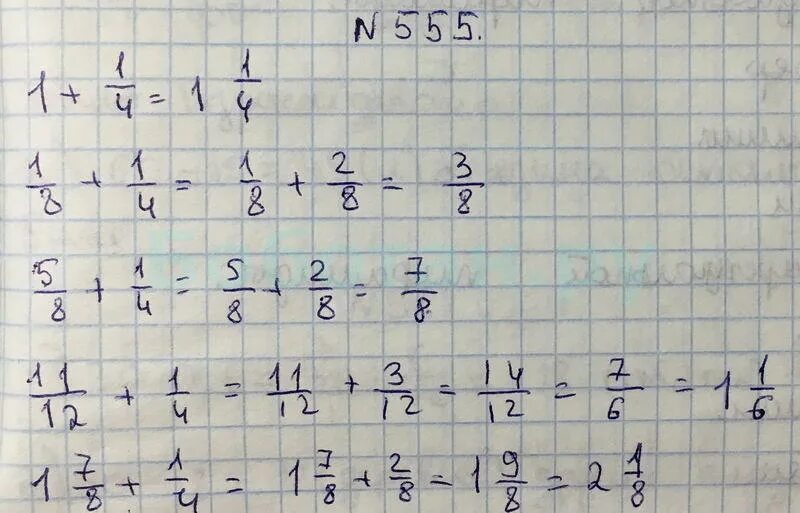 N 555.
1 + 1/4 = 1 1/4
1/8 + 1/4 = 1/8 + 2/8 = 3/8
5/8 + 1/4 = 5/8 + 2/8 = 7/8
11/12 + 1/4 = 11/12 + 3/12 = 14/12 = 7/6 = 1 1/6
1 7/8 + 1/4 = 1 7/8 + 2/8 = 1 9/8 = 2 1/8